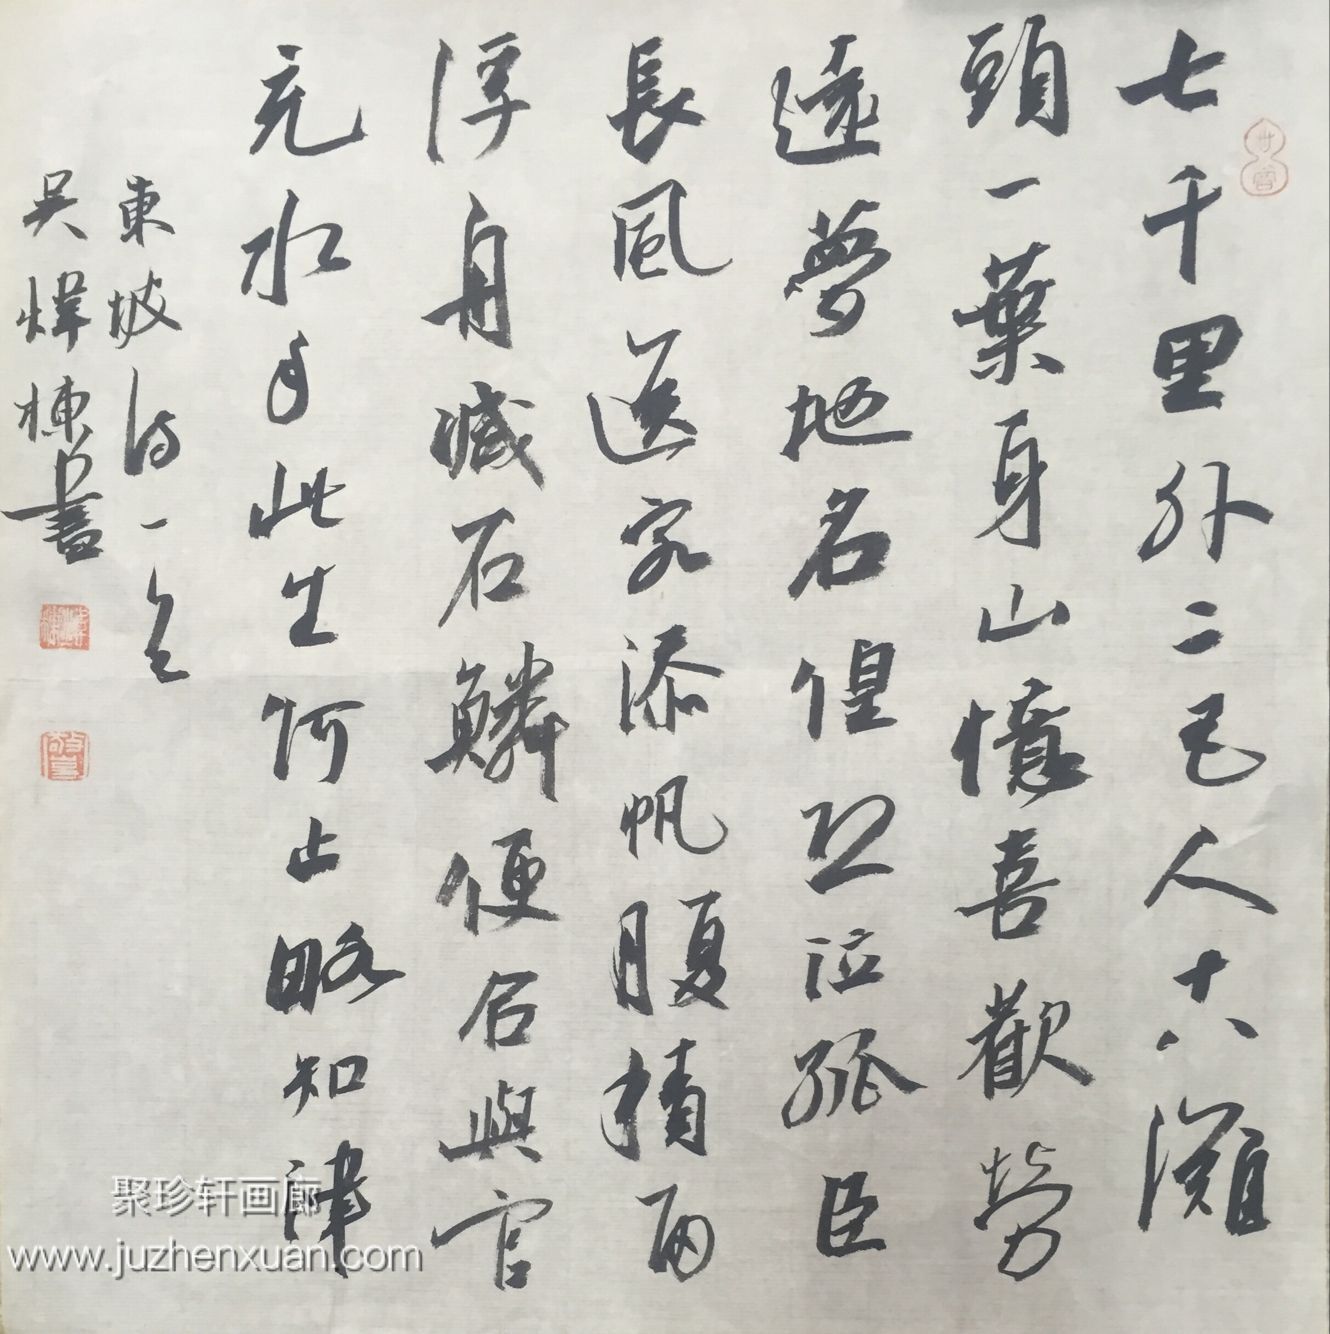 七千里外二毛人十八灘
頭一葉身山憶喜歡勞
遠夢地名惶恐泣孤臣
長風送客添帆腹積雨
浮舟減石鱗便合與官
充水手此生何止略知津
東坡詩一首
吳煒棟書
聚珍轩画廊
www.juzhenxuan.com